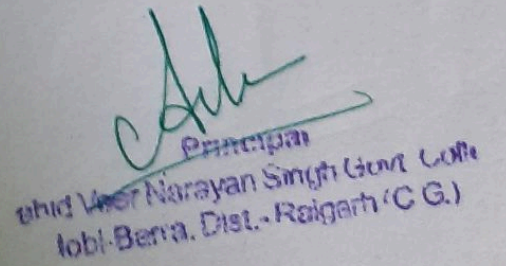 Principal
ahid Veer Narayan Singh Govt Colle
lobi-Barra. Dist.- Raigarh (C G.)